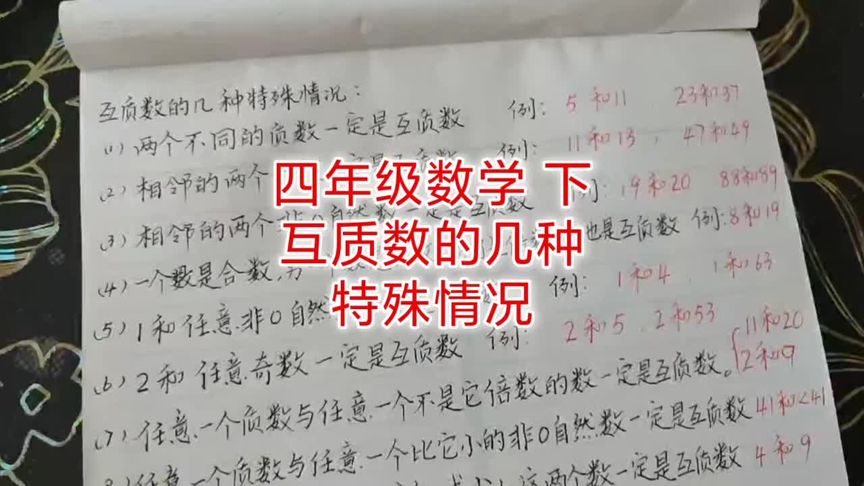 互质数的几种特殊情况：
(1) 两个不同的质数一定是互质数 例：5和11 23和37
(2) 相邻的两个 例：11和13，47和49
(3) 相邻的两个非0自然数一定是互质数 19和20 88和89
(4) 一个数是合数，另一个数 也是互质数 例：8和19
(5) 1和任意非0自然 例：1和4，1和63
(6) 2和任意奇数一定是互质数 例：2和5，2和53
(7) 任意一个质数与任意一个不是它倍数的数一定是互质数。11和20 2和9
任意一个质数与任意一个比它小的非0自然数一定是互质数 41和<41
这两个数一定是互质数 4和9
四年级数学 下
互质数的几种
特殊情况